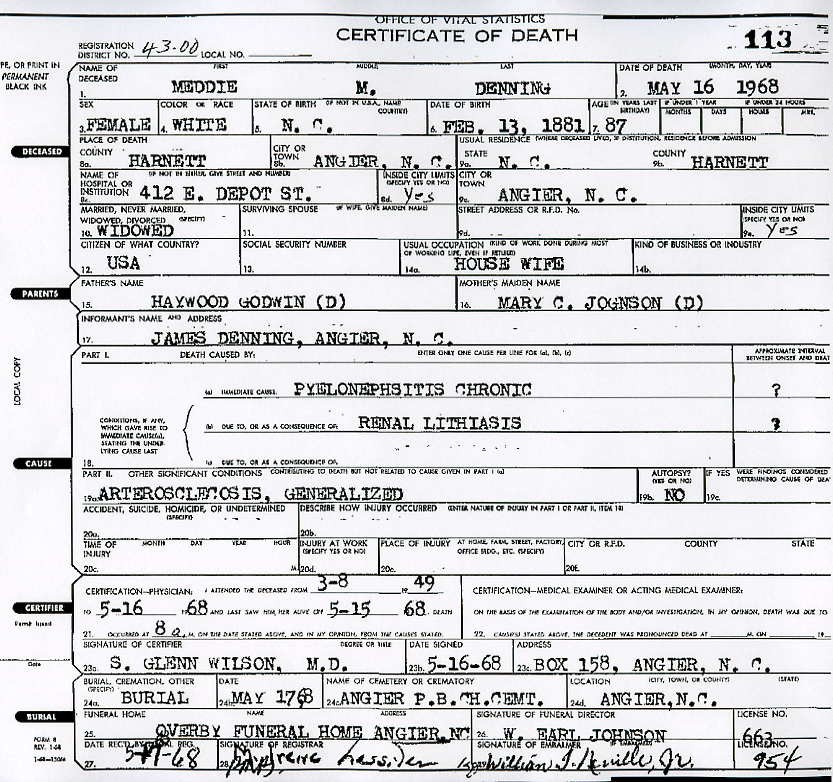 OFFICE OF VITAL STATISTICS
CERTIFICATE OF DEATH
113
REGISTRATION DISTRICT NO. 43-00 LOCAL NO.
PE, OR PRINT IN PERMANENT BLACK INK
NAME OF DECEASED FIRST MIDDLE LAST DATE OF DEATH (MONTH, DAY, YEAR)
1. MEDDIE M. DENNING 2. MAY 16 1968
SEX COLOR OR RACE STATE OF BIRTH (IF NOT IN U.S.A., NAME COUNTRY) DATE OF BIRTH AGE (IN YEARS LAST BIRTHDAY) IF UNDER 1 YEAR MONTHS DAYS IF UNDER 24 HOURS HOURS MIN.
3. FEMALE 4. WHITE 5. N. C. 6. FEB. 13, 1881 7. 87
DECEASED
PLACE OF DEATH USUAL RESIDENCE (WHERE DECEASED LIVED, IF INSTITUTION, RESIDENCE BEFORE ADMISSION)
COUNTY CITY OR TOWN STATE COUNTY
8a. HARNETT 8b. ANGIER, N. C. 9a. N. C. 9b. HARNETT
NAME OF HOSPITAL OR INSTITUTION (IF NOT IN EITHER, GIVE STREET AND NUMBER) INSIDE CITY LIMITS (SPECIFY YES OR NO) CITY OR TOWN
8c. 412 E. DEPOT ST. 8d. Yes 9c. ANGIER, N. C.
MARRIED, NEVER MARRIED, WIDOWED, DIVORCED (SPECIFY) SURVIVING SPOUSE (IF WIFE, GIVE MAIDEN NAME) STREET ADDRESS OR R.F.D. No. INSIDE CITY LIMITS (SPECIFY YES OR NO)
10. WIDOWED 11. 9d. 9e. Yes
CITIZEN OF WHAT COUNTRY? SOCIAL SECURITY NUMBER USUAL OCCUPATION (KIND OF WORK DONE DURING MOST OF WORKING LIFE, EVEN IF RETIRED) KIND OF BUSINESS OR INDUSTRY
12. USA 13. 14a. HOUSE WIFE 14b.
PARENTS
FATHER'S NAME MOTHER'S MAIDEN NAME
15. HAYWOOD GODWIN (D) 16. MARY C. JOGNSON (D)
INFORMANT'S NAME AND ADDRESS
17. JAMES DENNING, ANGIER, N. C.
LOCAL COPY
PART I. DEATH CAUSED BY: ENTER ONLY ONE CAUSE PER LINE FOR (a), (b), (c) APPROXIMATE INTERVAL BETWEEN ONSET AND DEAT
(a) IMMEDIATE CAUSE. PYELONEPHSITIS CHRONIC ?
CONDITIONS, IF ANY, WHICH GAVE RISE TO IMMEDIATE CAUSE(a), STATING THE UNDERLYING CAUSE LAST
(b) DUE TO, OR AS A CONSEQUENCE OF: RENAL LITHIASIS ?
18. (c) DUE TO, OR AS A CONSEQUENCE OF:
CAUSE
PART II. OTHER SIGNIFICANT CONDITIONS CONTRIBUTING TO DEATH BUT NOT RELATED TO CAUSE GIVEN IN PART I (a) AUTOPSY? (YES OR NO) IF YES WERE FINDINGS CONSIDERED DETERMINING CAUSE OF DEA
19a. ARTEROSCLECOSIS, GENERALIZED 19b. NO 19c.
ACCIDENT, SUICIDE, HOMICIDE, OR UNDETERMINED (SPECIFY) DESCRIBE HOW INJURY OCCURRED (ENTER NATURE OF INJURY IN PART I OR PART II, ITEM 18)
20a. 20b.
TIME OF INJURY MONTH DAY YEAR HOUR INJURY AT WORK (SPECIFY YES OR NO) PLACE OF INJURY AT HOME, FARM, STREET, FACTORY, OFFICE BLDG., ETC. (SPECIFY) CITY OR R.F.D. COUNTY STATE
20c. M. 20d. 20e. 20f.
CERTIFIER
CERTIFICATION—PHYSICIAN: I ATTENDED THE DECEASED FROM 3-8 19 49 CERTIFICATION—MEDICAL EXAMINER OR ACTING MEDICAL EXAMINER:
TO 5-16 1968 AND LAST SAW HIM/HER ALIVE ON 5-15 68 DEATH ON THE BASIS OF THE EXAMINATION OF THE BODY AND/OR INVESTIGATION, IN MY OPINION, DEATH WAS DUE TO
21. OCCURRED AT 8 a. M. ON THE DATE STATED ABOVE, AND IN MY OPINION, FROM THE CAUSES STATED. 22. CAUSE(S) STATED ABOVE, THE DECEDENT WAS PRONOUNCED DEAD AT M. ON 19
SIGNATURE OF CERTIFIER DEGREE OR TITLE DATE SIGNED ADDRESS
Date
23a. S. GLENN WILSON, M.D. 23b. 5-16-68 23c. BOX 158, ANGIER, N. C.
BURIAL, CREMATION, OTHER (SPECIFY) DATE NAME OF CEMETERY OR CREMATORY LOCATION (CITY, TOWN, OR COUNTY) (STATE)
24a. BURIAL 24b. MAY 17,68 24c. ANGIER P.B.CH.CEMT. 24d. ANGIER,N.C.
BURIAL
FUNERAL HOME NAME ADDRESS SIGNATURE OF FUNERAL DIRECTOR LICENSE NO.
25. OVERBY FUNERAL HOME ANGIER, NC 26. W. EARL JOHNSON 663
FORM 8 REV. 1-68
DATE REC'D BY LOCAL REG. SIGNATURE OF REGISTRAR SIGNATURE OF EMBALMER LICENSE NO.
27. 28. 29. William J. Neville, Jr. 954